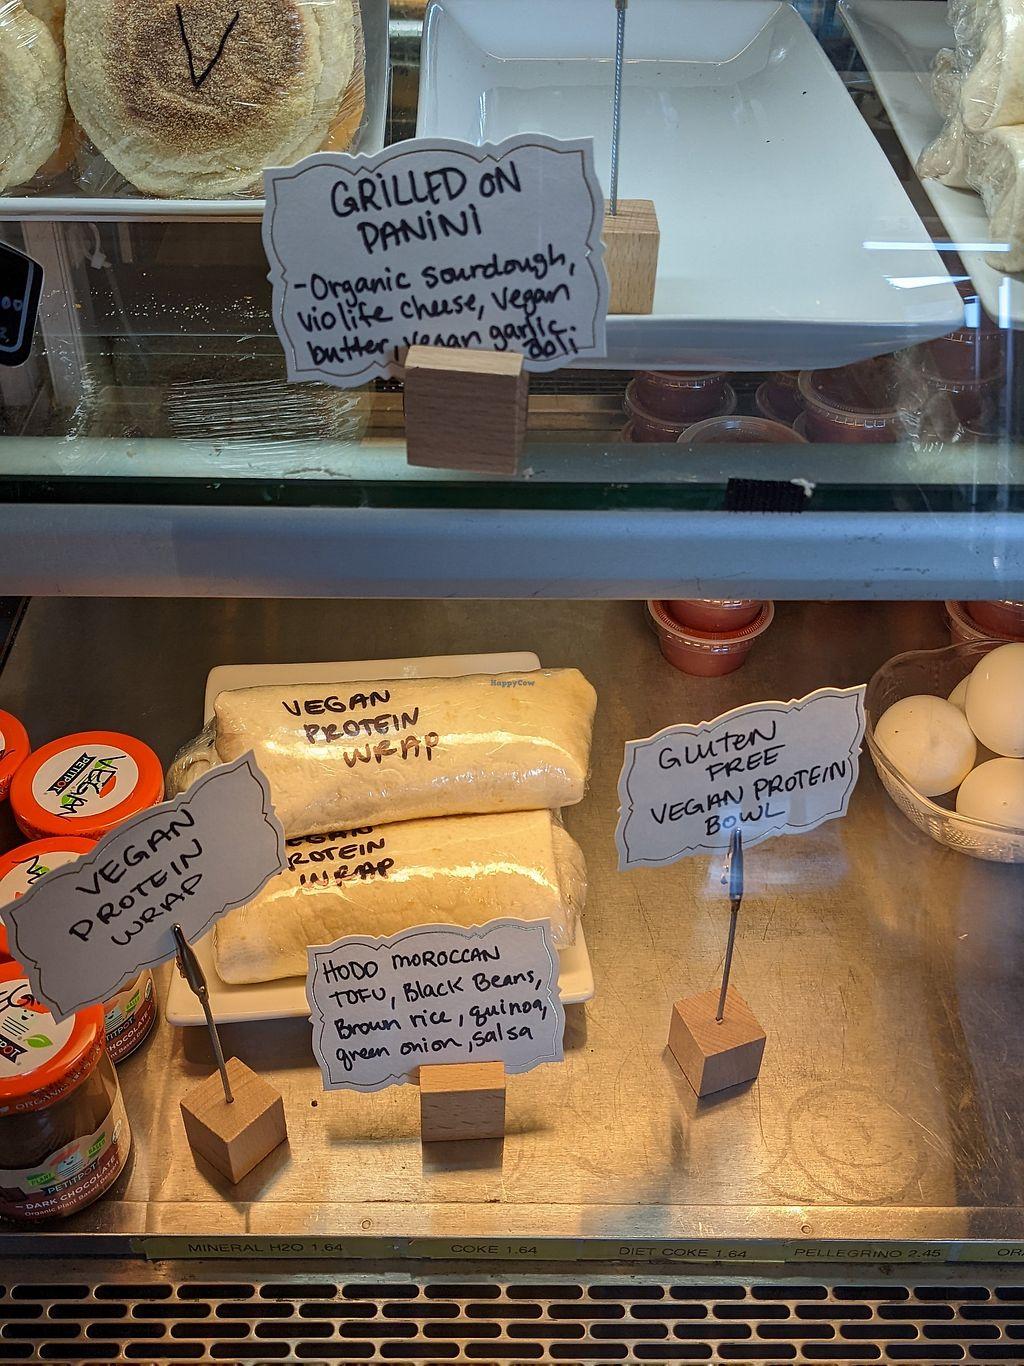 V
GRILLED ON
PANINI
-Organic sourdough,
violife cheese, vegan
butter, vegan garlic
aoli
HappyCow
VEGAN
PROTEIN
WRAP
VEGAN
PROTEIN
WRAP
VEGAN
PETITPOT
VEGAN
PROTEIN
WRAP
GLUTEN
FREE
VEGAN PROTEIN
BOWL
HODO MOROCCAN
TOFU, BLACK BEANS,
Brown rice, quinoa,
green onion, salsa
PETITPOT
DARK CHOCOLATE
Organic Plant Based
MINERAL H2O 1.64
COKE 1.64
DIET COKE 1.64
PELLEGRINO 2.45